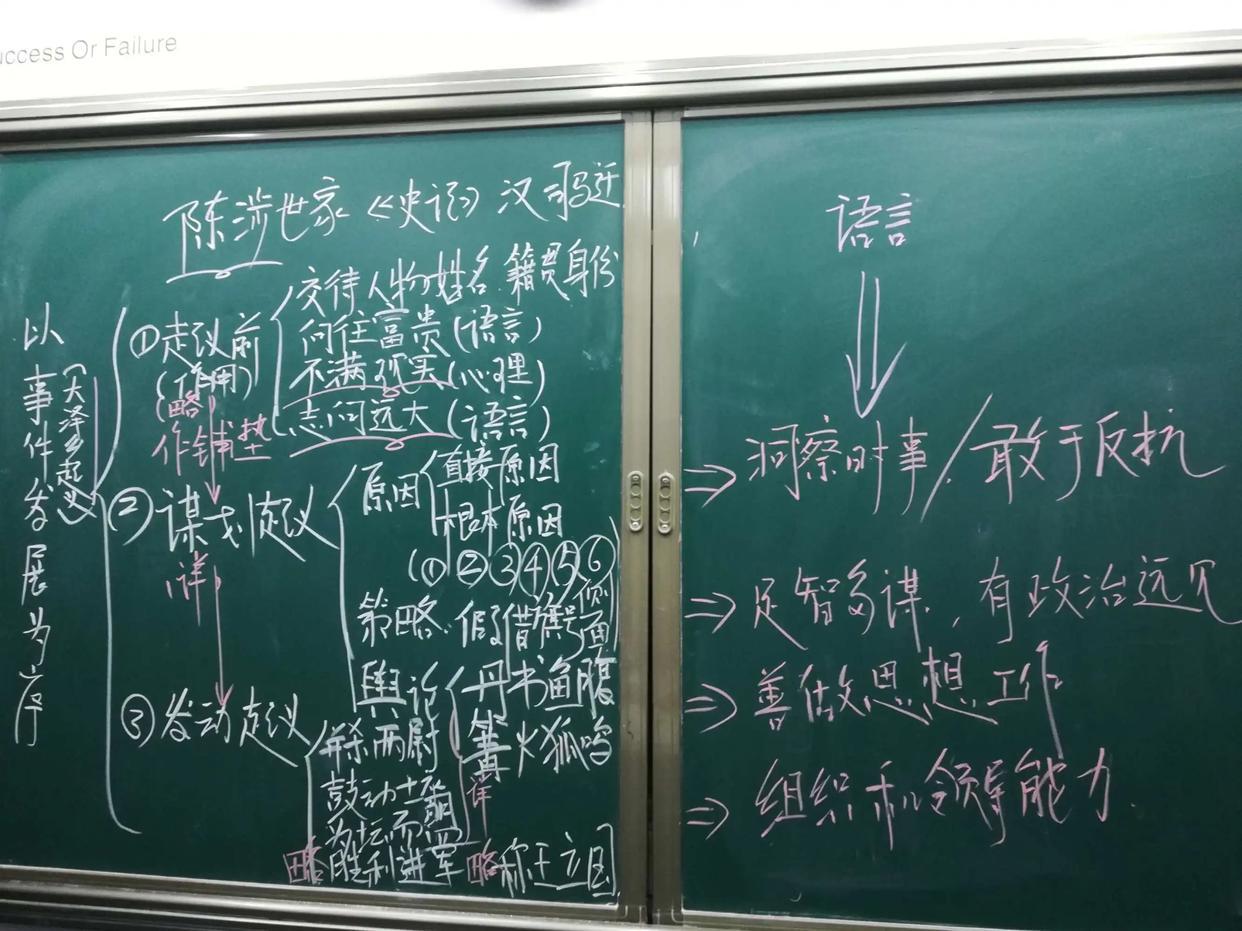 uccess Or Failure
陈涉世家《史记》汉 司马迁
以事件发展为序
(大泽乡起义)
①起议前
(作用)
(略)
作铺垫
交待人物姓名 籍贯身份
向往富贵(语言)
不满现实(心理)
志向远大(语言)
②谋划起议
(详)
原因
直接原因
根本原因
(①②③④⑤⑥
策略 假借旗号
舆论
丹书鱼腹
篝火狐鸣
③发动起议
并杀两尉
鼓动士卒
为坛而盟
详
略 胜利进军 略 称王立国
语言
⇒ 洞察时事/敢于反抗
⇒ 足智多谋,有政治远见
⇒ 善做思想工作
⇒ 组织和领导能力